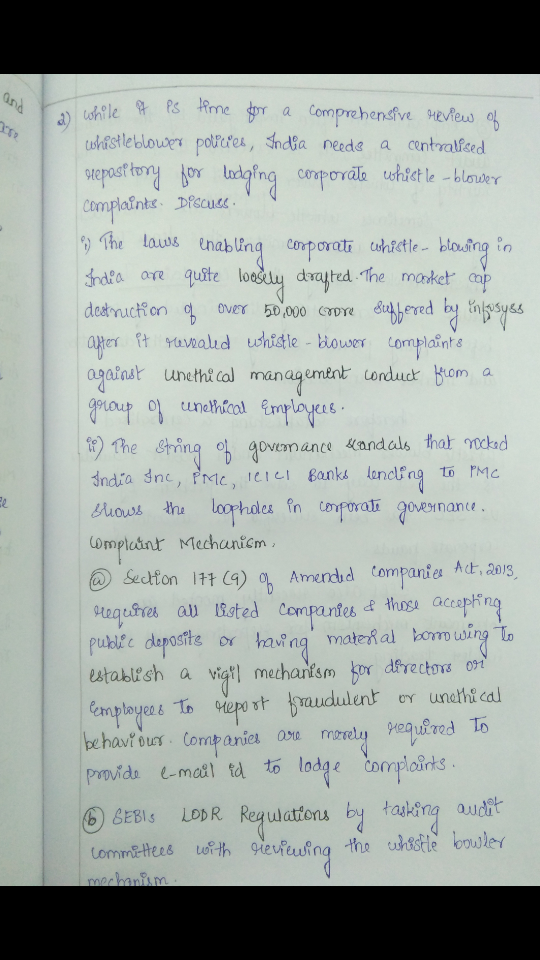 and
2) While it is time for a comprehensive review of
whistleblower policies, India needs a centralised
repository for lodging corporate whistle-blower
complaints. Discuss.
i) The laws enabling corporate whistle-blowing in
India are quite loosely drafted. The market cap
destruction of over 50,000 crore suffered by infosyss
after it revealed whistle-blower complaints
against unethical management conduct from a
group of unethical Employees.
ii) The string of governance scandals that rocked
India Inc, PMC, ICICI Banks lending to PMC
shows the loopholes in corporate governance.
Complaint Mechanism.
(a) Section 177(9) of Amended Companies Act, 2013,
requires all listed companies & those accepting
public deposits or having material borrowing to
establish a vigil mechanism for directors or
Employees to report fraudulent or unethical
behaviour. Companies are merely required to
provide e-mail id to lodge complaints.
(b) SEBIs LODR Regulations by tasking audit
committees with reviewing the whistle bowler
mechanism.